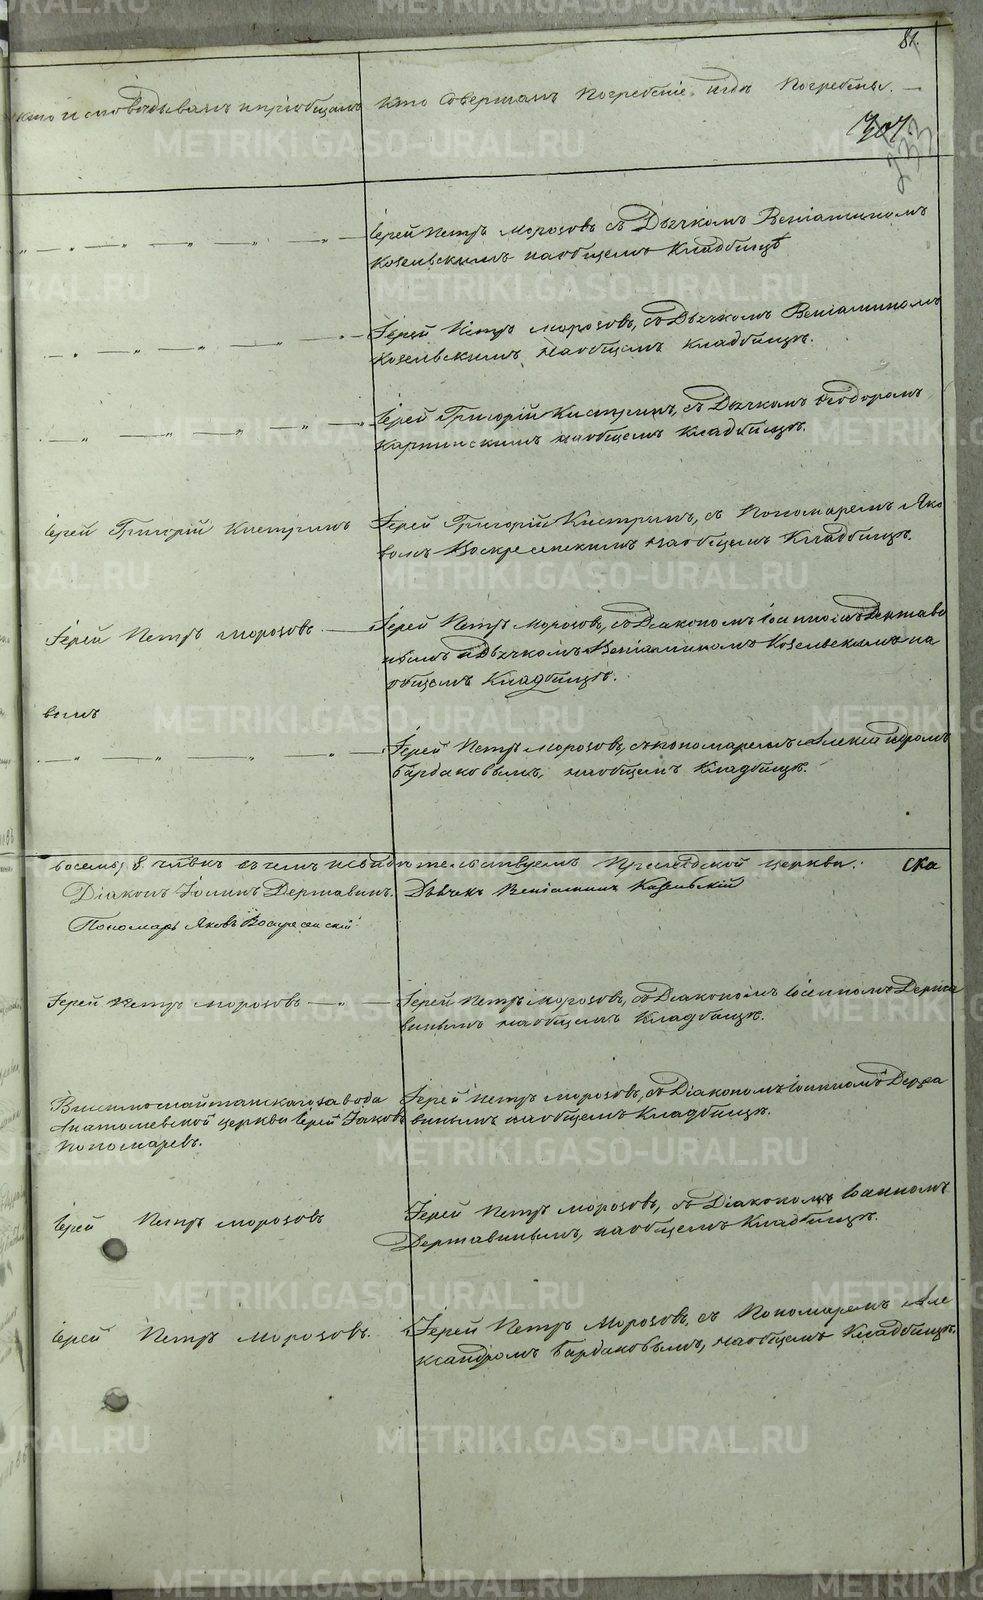 81.
Кто исповѣдывалъ и пріобщалъ
Кто совершалъ погребеніе и гдѣ погребены.
307.
233
Іерей Петръ Морозовъ съ Дьячкомъ Веніаминомъ
Козельскимъ на общемъ Кладбищѣ
Іерей Петръ Морозовъ, съ Дьячкомъ Веніаминомъ
Козельскимъ на общемъ Кладбищѣ.
Іерей Григорій Кистринъ, съ Дьячкомъ Ѳеодоромъ
Карпинскимъ на общемъ Кладбищѣ.
Іерей Григорій Кистринъ
Іерей Григорій Кистринъ, съ Пономаремъ Яко
вомъ Воскресенскимъ на общемъ Кладбищѣ.
Іерей Петръ Морозовъ
Іерей Петръ Морозовъ, съ Діакономъ Іоанномъ Держави
нымъ и Дьячкомъ Веніаминомъ Козельскимъ на
общемъ Кладбищѣ.
вымъ
Іерей Петръ Морозовъ, съ пономаремъ Александромъ
Бардаковымъ, на общемъ Кладбищѣ.
восемь, 8. члвкъ въ чемъ и свидѣтельствуемъ Приходской церкви. ска
Діаконъ Іоаннъ Державинъ. Дьячекъ Веніаминъ Козельскій
Пономарь Яковъ Воскресенскій
Іерей Петръ Морозовъ
Іерей Петръ Морозовъ, съ Діакономъ Іоанномъ Держа
винымъ на общемъ Кладбищѣ.
Висимошайтанскаго завода
Анатолиевской церкви Іерей Іаковъ
Пономаревъ.
Іерей Петръ Морозовъ, съ Діакономъ Іоанномъ Держа
винымъ на общемъ Кладбищѣ.
Іерей Петръ Морозовъ
Іерей Петръ Морозовъ, съ Діакономъ Іоанномъ
Державинымъ, на общемъ Кладбищѣ.
Іерей Петръ Морозовъ.
Іерей Петръ Морозовъ, съ Пономаремъ Але
ксандромъ Бардаковымъ, на общемъ Кладбищѣ.
METRIKI.GASO-URAL.RU